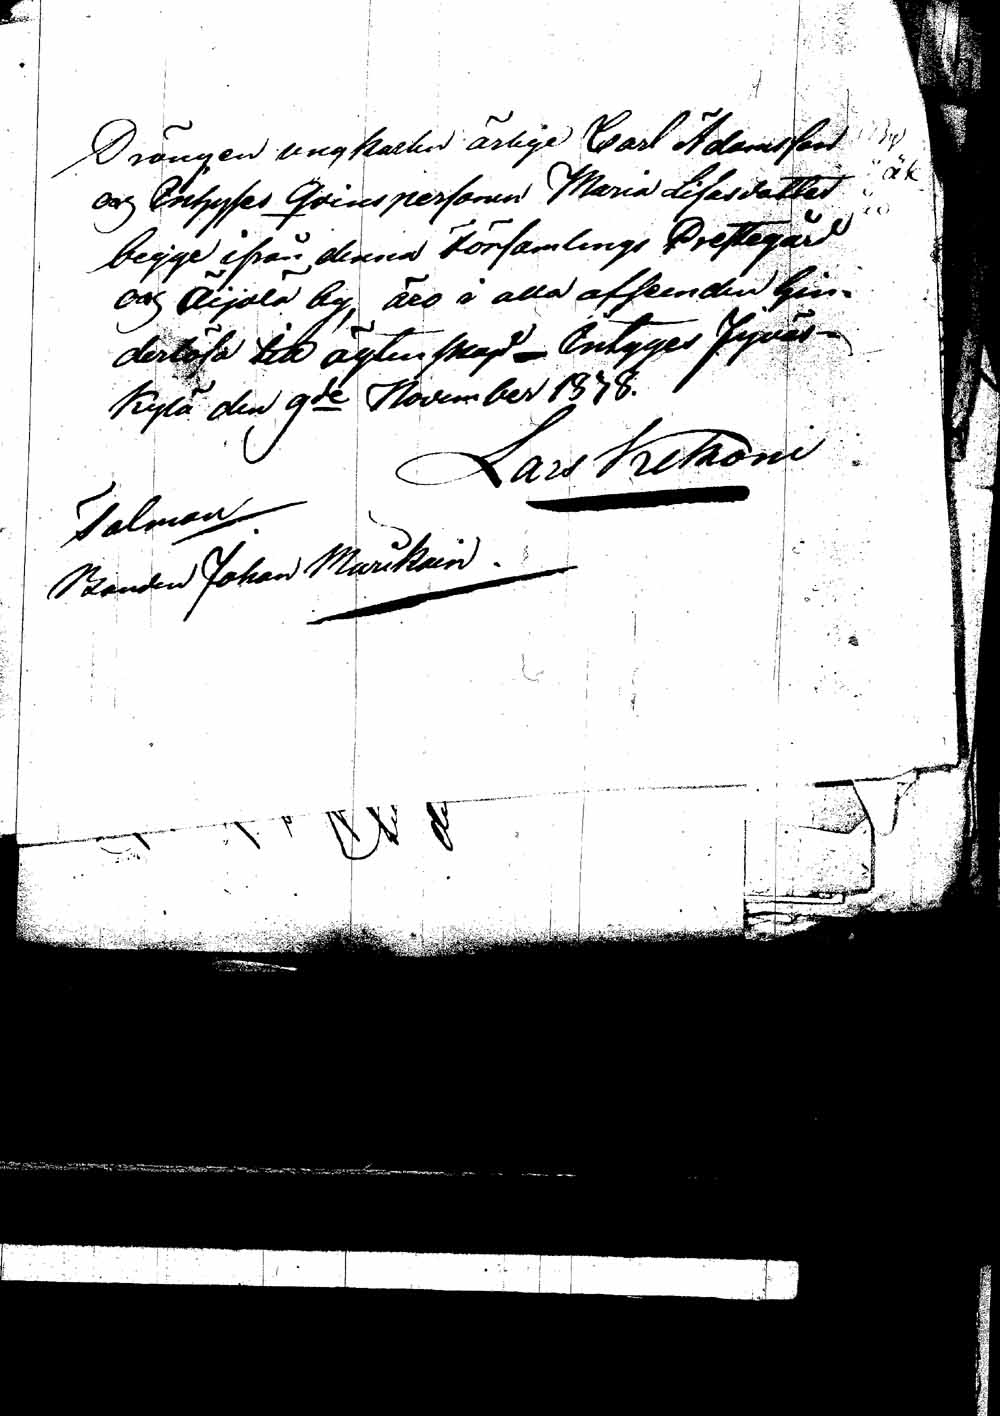 Drängen ungkarlen ärlige Carl Adamsson
og Qvinspersonen Maria Lisasdatter
begge ifrån denna Församlings Prestegård
og Äijälä by, äro i alla afseenden hin-
derlösa till ägtenskap – Intyges Jyväs-
kylä den 9de November 1878.
Lars Kekoni
Talman
Bonden Johan Murikain.